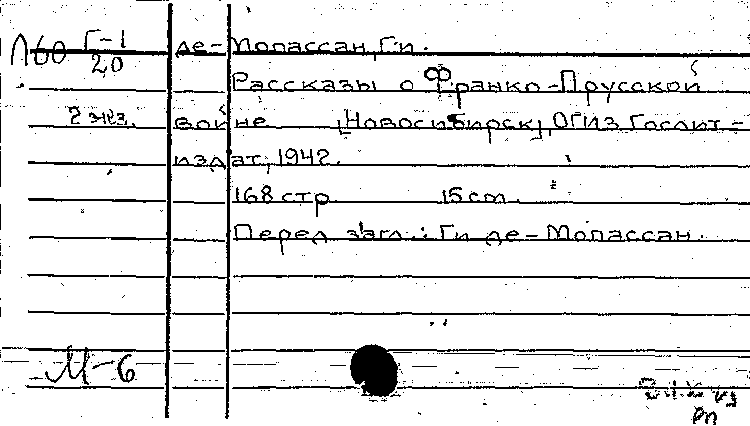 Л60 Г-1 де-Мопассан, Ги.
20
Рассказы о Франко-Прусской
2 экз. войне [Новосибирск], ОГИЗ Гослит-
издат, 1942.
168 стр 15 cm.
Перед загл.: Ги де-Мопассан.
М-6